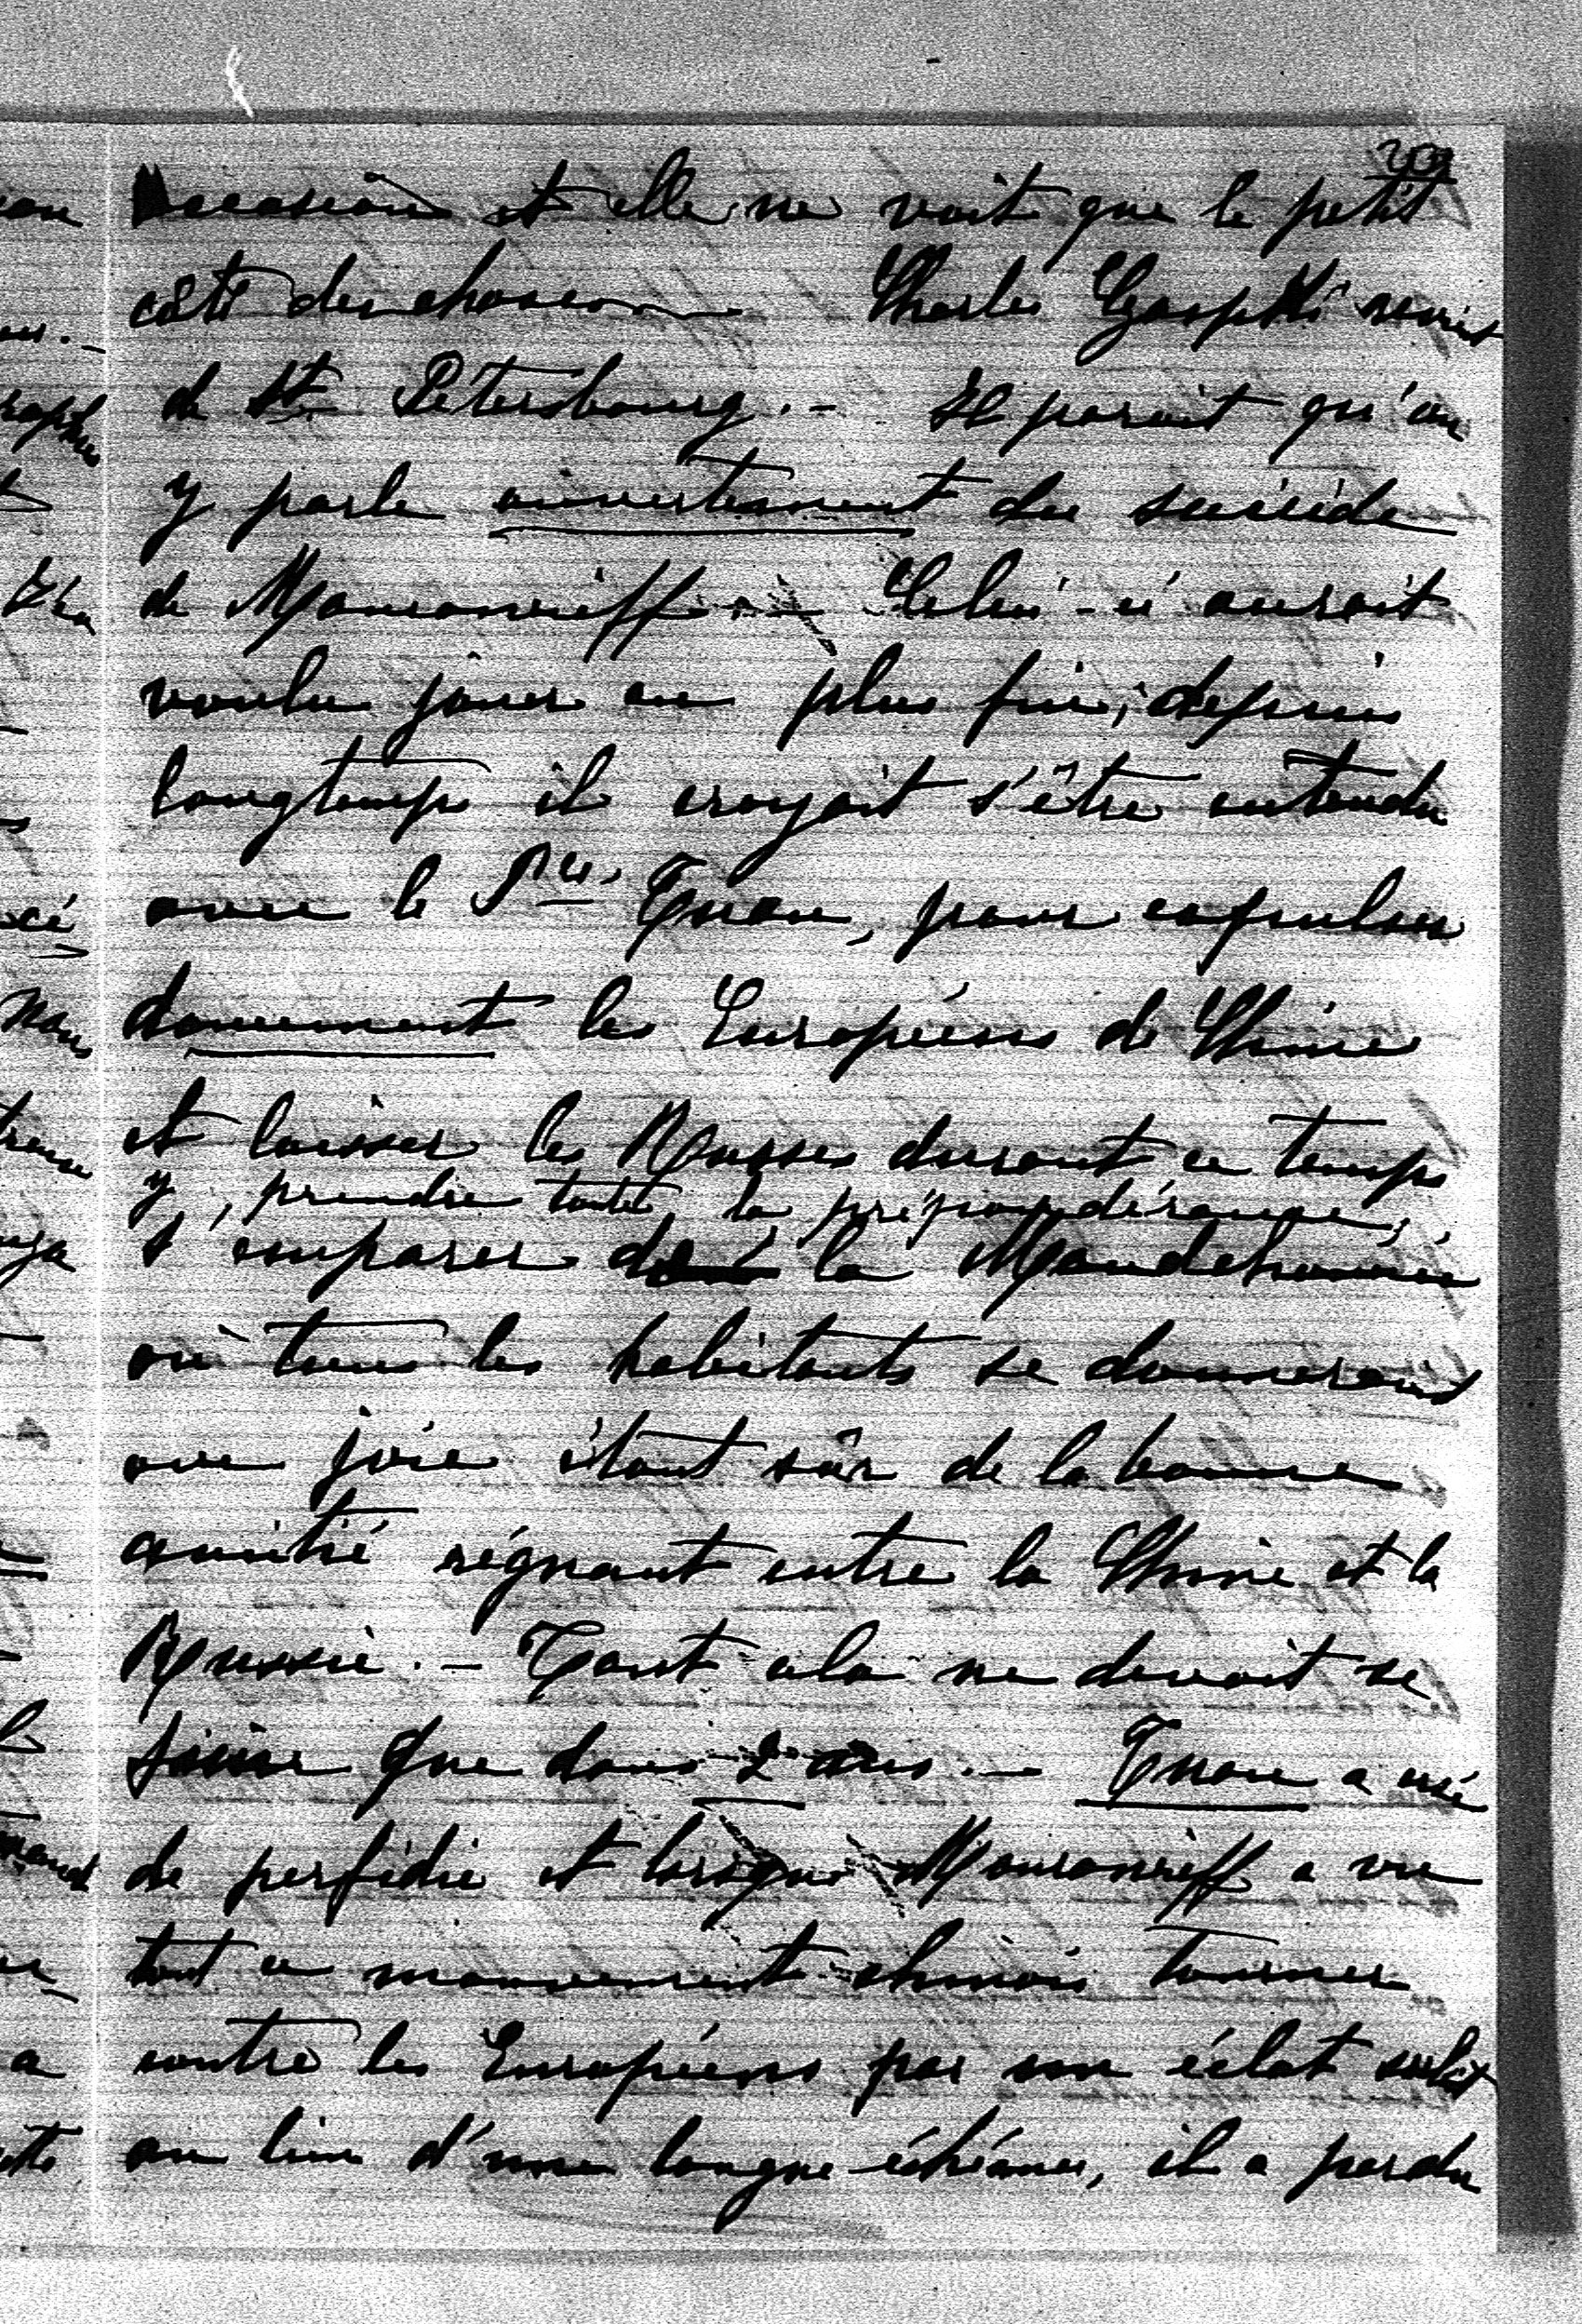 occasion et elle ne voit que le petit
côté des choses Charles Czapski revient
de St Pétersbourg. – Il parait qu'on
y parle ouvertement du suicide
de Mouravieff – Celui-ci aurait
voulu jouer au plus fin, depuis
longtemps il croyait s'être entendu
avec le Pce. Tuan, pour expulser
doucement les Européens de Chine
et laisser les Russes durant ce temps
y, prendre toute la prépondérance,
s'emparer de la Mandchourie
où tous les habitants se donneraient
avec joie étant sûr de la bonne
amitié régnant entre la Chine et la
Russie. – Tout cela ne devait se
finir que dans 2 ans. – Tuan a usé
de perfidie et lorsque Mouravieff a vu
tout ce mouvement chinois tourner
contre les Européens par un éclat subit
au lieu d'une longue échéance, il a perdu